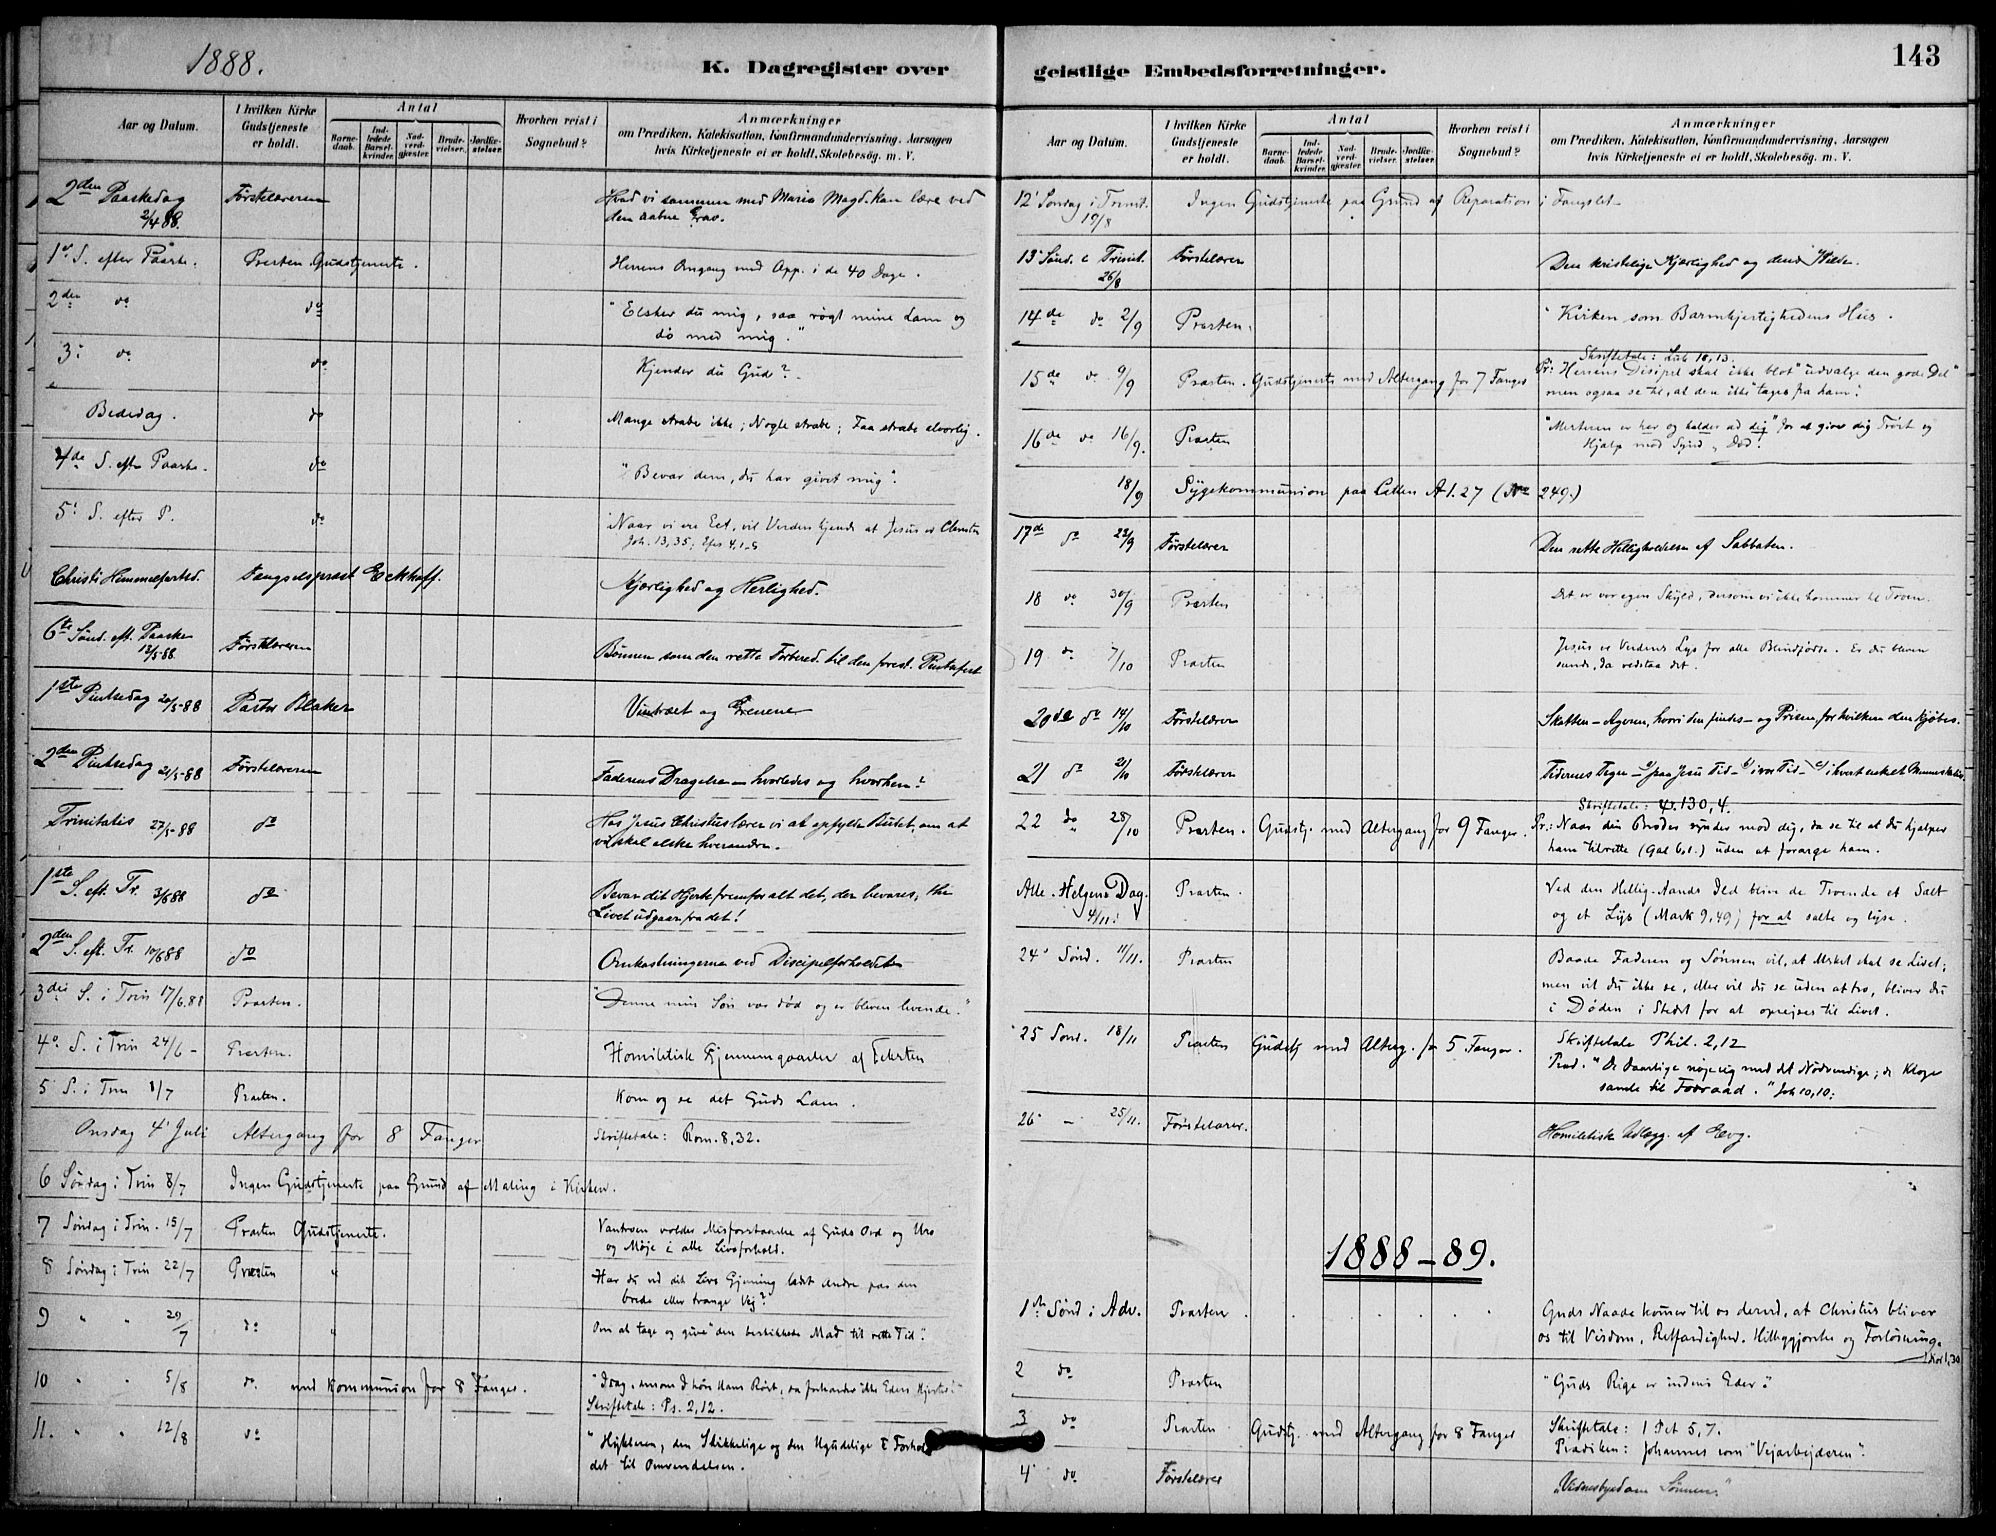 1888.
K. Dagregister over
Aar og Datum.
I hvilken Kirke
Gudstjeneste
er holdt.
Antal
Barne-
daab.
Ind-
ledede
Barsel-
kvinder.
Nad-
verd-
gjester.
Brude-
vielser.
Jordfæ-
stelser.
Hvorhen reist i
Sognebud?
Anmærkninger
om Prædiken, Katekisation, Konfirmandundervisning, Aarsagen
hvis Kirketjeneste ei er holdt, Skolebesøg. m. V.
2den Paaskedag Førstelæreren Hvad vi sammen med Maria Magd. kan lære ved
2/4 88. den aabne Grav.
1. S. efter Paaske. Presten Gudstjeneste. Herrens Omgang med App. i de 40 Dage.
2den do do "Elsker du mig, saa røgt mine Lam og
dø med mig."
3: do do Kjender du Gud?
Bededag. do Mange stræbe ikke; Nogle stræbe; Faa stræbe alvorlig.
4de S. eft Paaske. do "Bevar dem, du har givet mig".
5: S. efter P. do Naar vi ere Eet, vil Verden kjende at Jesus er Christus
Joh. 13,35; Efes 4.1-5
Christi Himmelfartsd. Fængselspræst Eckhoff. Kjærlighed og Herlighed.
6te Sønd. eft. Paaske Førstelæreren
13/5-88. Bønnen som den rette Forbered. til den forest. Pintsefest
1ste Pintsedag 20/5-88 Pastor Blaker Vintræet og Grenene
2den Pintsedag 21/5-88 Førstelæreren Faderens Dragelse - hvorledes og hvorhen?
Trinitatis 27/5-88 do Hos Jesus Christus lærer vi at opfylde Budet, om at
vi skal elske hverandre.
1ste S. eft. Tr. 3/6 88 do Bevar dit Hjerte fremfor alt det, der bevares, thi
Livet udgaar fra det!
2den S. eft. Tr. 10/6 88 do Omkostningerne ved Discipelforholdet
3die S. i Trin 17/6.88 Præsten. "Denne min Søn var død og er bleven levende."
4. S. i Trin 24/6 - Præsten. Homiletisk Gjennemgaaelse af Texten
5 S. i Trin 1/7 Præsten. Kom og se det Guds Lam.
Onsdag 4' Juli Altergang for 8 Fanger Skriftetale: Rom. 8,32.
6 Søndag i Trin 8/7 Ingen Gudstjeneste paa Grund af Maling i Kirken.
7 Søndag i Trin. 15/7 Præsten Gudstjeneste. Vantroen volder Misforstaaelse af Guds Ord og Uro
og Møje i alle Livsforhold.
8 Søndag i Trin 22/7 Præsten " Har du ved dit Livs Gjerning ledet Andre paa den
brede eller trange Vej?
9 " " 29/7 do " Om at tage og give "den beskikkede Mad til rette Tid".
10 " " 5/8 do. med Kommunion for 8 Fanger. "Idag, om I høre Hans Røst, da forhærder ikke Eders Hjerter!"
Skriftetale: Ps. 2,12.
11. " " 12/8 do "Hykleren, den Skikkelige og den Ugudelige i Forhol
det til Omvendelsen.
143
geistlige Embedsforretninger.
Aar og Datum.
I hvilken Kirke
Gudstjeneste
er holdt.
Antal
Barne-
daab.
Ind-
ledede
Barsel-
kvinder.
Nad-
verd-
gjester.
Brude-
vielser.
Jordfæ-
stelser.
Hvorhen reist i
Sognebud?
Anmærkninger
om Prædiken, Katekisation, Konfirmandundervisning, Aarsagen
hvis Kirketjeneste ei er holdt, Skolebesøg. m. V.
12' Søndag i Trinit. Ingen Gudstjeneste paa Grund af Reparation i Fængslet
19/8
13' Sønd. e Trinit. Førstelærer Den kristelige Kjærlighed og dens Kilde.
26/8
14de do 2/9 Præsten. "Kirken som Barmhjertighedens Hus.
Skriftetale: Luk 18,13.
15de do 9/9 Præsten. Gudstjeneste med Altergang for 7 Fanger Pr: Herrens Disipel skal ikke blot "udvælge den gode Del"
men ogsaa se til, at den ikke "tages fra ham".
16de do 16/9. Præsten "Mesteren er her og kalder ad dig" for at give dig Trøst og
Hjælp mod Synd, Død.
18/9 Sygekommunion paa Cellen A I. 27 (No 249.)
17de do 23/9 Førstelærer Den rette Helligholdelse af Sabbaten.
18 do 30/9 Præsten Det er vor egen Skyld, dersom vi ikke kommer til Troen.
19 do 7/10 Præsten Jesus er Verdens Lys for alle Blindfødte. Er du bleven
seende, da vedstaa det.
20de do 14/10 Førstelærer Skatten - Ageren, hvori den findes - og Prisen, for hvilken den kjøbes.
21 do 21/10 Førstelærer Tidernes Tegn - paa Jesu Tid - i vor Tid - i hvert enkelt Menneskeliv.
Skriftetale: ψ. 130, 4.
22 do 28/10 Præsten. Gudstj. med Altergang for 9 Fanger. Pr.: Naar din Broder synder mod dig, da se til at du hjælper
ham tilrette (Gal 6,1.) uden at forarge ham.
Alle Helgens Dag. Præsten. Ved den Hellig-Aands Ild blive de Troende et Salt
4/11. og et Lys (Mark 9,49) for at salte og lyse.
24' Sønd. 11/11. Præsten Baade Faderen og Sønnen vil, at Mskt skal se Livet;
men vil du ikke se, eller vil du se uden at tro, bliver du
i Døden i Stedet for at oprejses til Livet.
25 Sønd. 18/11 Præsten Gudstj med Alterg. for 5 Fanger. Skriftetale Phil. 2,12
Præd. "De Daarlige nøje sig med det Nødvendige; de Kloge
samle til Forraad." Joh 10,10.
26' - 25/11. Førstelærer. Homiletisk Udlægg. af Evg.
1888-89.
1ste Sønd i Adv. Præsten. Guds Naade kommer til os derved, at Christus bliver
os til Visdom, Retfærdighed, Helliggjørelse og Forløsning.
1 Kor 1,30
2 do Præsten "Guds Rige er inden i Eder".
3 do Præsten Gudstj. med Altergang for 8 Fanger Skriftetale: 1 Pet 5,7.
Prædiken: Johannes som "Vejarbejderen".
4' do Førstelærer "Vidnesbyrd om Sønnen."